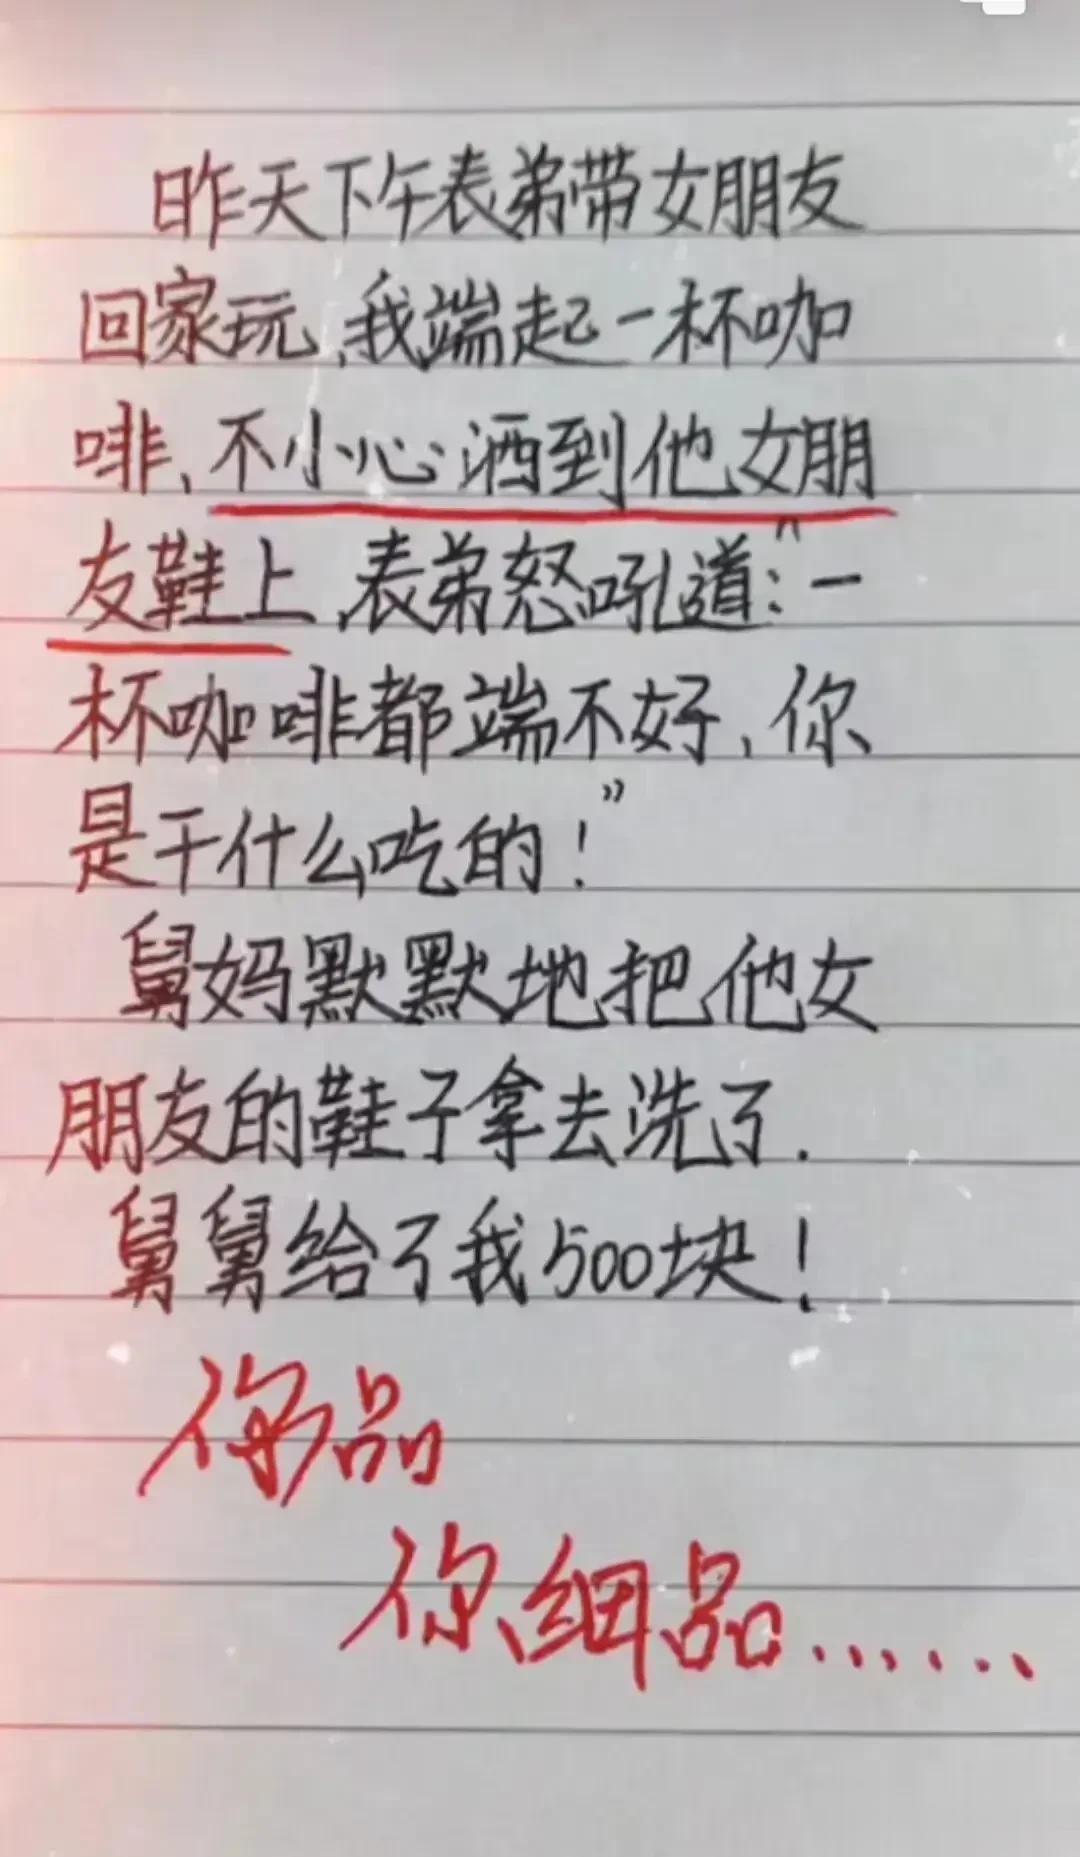 昨天下午表弟带女朋友
回家玩,我端起一杯咖
啡,不小心洒到他女朋
友鞋上,表弟怒吼道:“一
杯咖啡都端不好,你
是干什么吃的!”
舅妈默默地把他女
朋友的鞋子拿去洗了.
舅舅给了我500块!
你品
你细品......